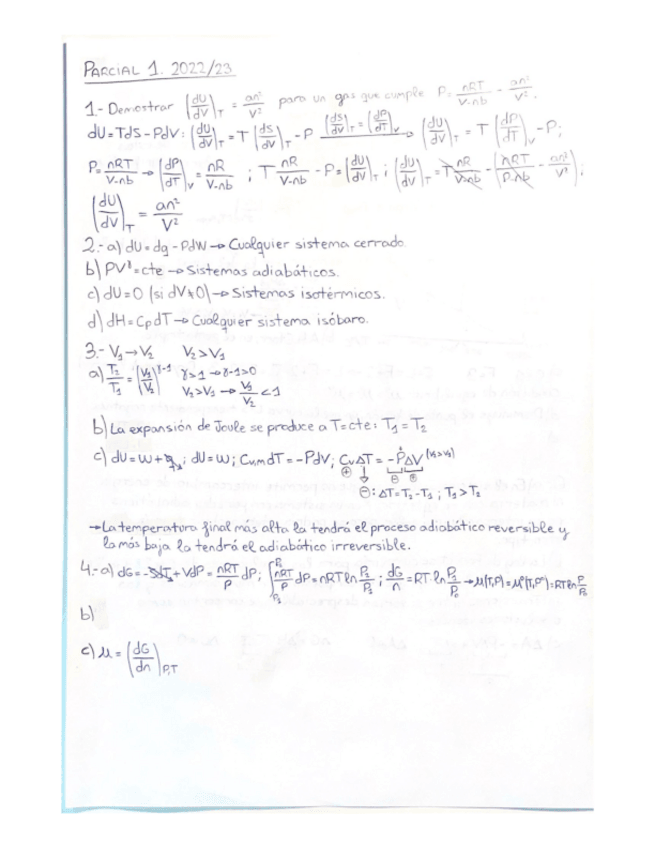 PARCIAL 1. 2022/23
1.- Demostrar (dU/dV)_T = an²/V² para un gas que cumple P = nRT/V-nb - an²/V².
dU = TdS - PdV: (dU/dV)_T = T(dS/dV)_T - P (dS/dV)_T = (dP/dT)_V → (dU/dV)_T = T(dP/dT)_V - P;
P = nRT/V-nb → (dP/dT)_V = nR/V-nb ; T nR/V-nb - P = (dU/dV)_T ; (dU/dV)_T = T nR/V-nb - (nRT/P-nb - an²/V²);
(dU/dV)_T = an²/V²
2.- a) dU = dq - PdW → Cualquier sistema cerrado
b) PV^γ = cte → Sistemas adiabáticos.
c) dU = 0 (si dV≠0) → Sistemas isotérmicos.
d) dH = CpdT → Cualquier sistema isóbaro.
3.- V₁ → V₂ V₂ > V₁
a) T₂/T₁ = (V₁/V₂)^γ-1 γ>1 → γ-1>0
V₂>V₁ → V₁/V₂ < 1
b) La expansión de Joule se produce a T=cte: T₁ = T₂
c) dU = w + q; dU = w; Cv,mdT = -PdV; CvΔT = -PΔV (V₂>V₁)
⊕ ⊖ ⊕
⊖: ΔT = T₂ - T₁ ; T₁ > T₂
→ La temperatura final más alta la tendrá el proceso adiabático reversible y
la más baja la tendrá el adiabático irreversible.
4.- a) dG = -SdT + VdP = nRT/P dP; ∫ nRT/P dP = nRT ln P₂/P₁ ; dG/n = RT ln P₂/P₀ → μ(T,P) = μ°(T,P°) = RT ln P/P₀
b)
c) μ = (dG/dn)_P,T